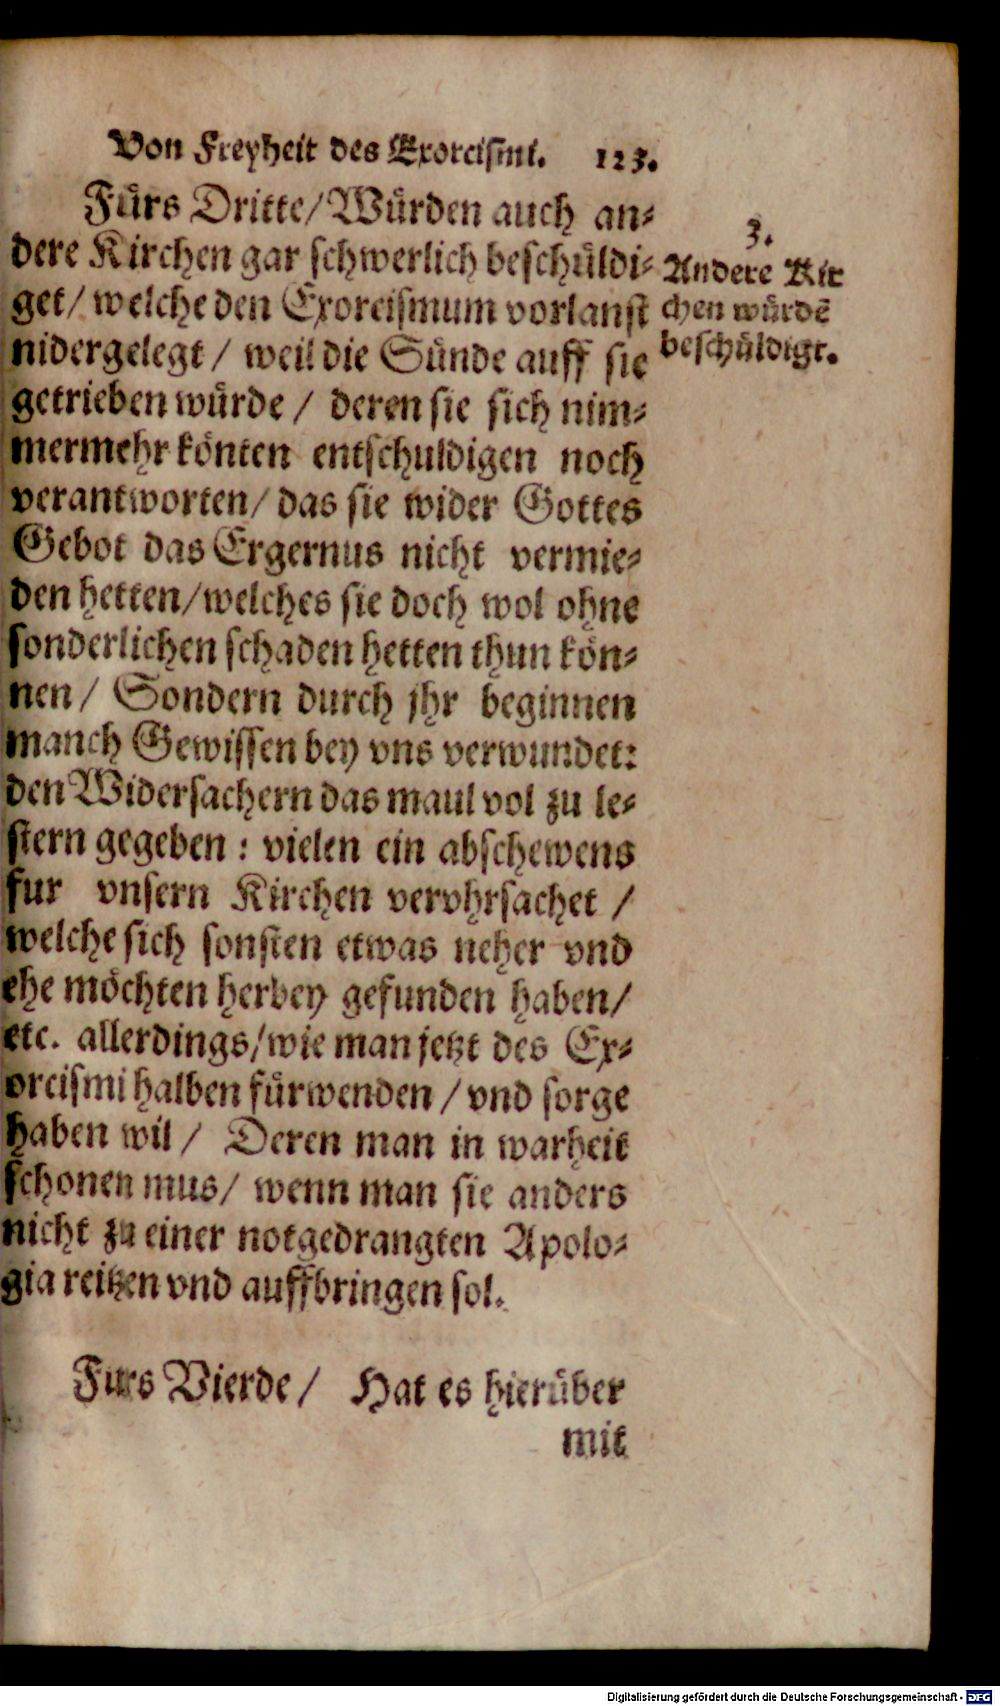 Von Freyheit des Exorcismi. 123.
Fürs Dritte/ Würden auch an⸗
dere Kirchen gar schwerlich beschüldi⸗
get/ welche den Exorcismum vorlanst
nidergelegt/ weil die Sünde auff sie
getrieben würde/ deren sie sich nim⸗
mermehr könten entschuldigen noch
verantworten/ das sie wider Gottes
Gebot das Ergernus nicht vermie⸗
den hetten/ welches sie doch wol ohne
sonderlichen schaden hetten thun kön⸗
nen/ Sondern durch jhr beginnen
manch Gewissen bey vns verwundet:
den Widersachern das maul vol zu le⸗
stern gegeben: vielen ein abschewens
fur vnsern Kirchen vervhrsachet/
welche sich sonsten etwas neher vnd
ehe möchten herbey gefunden haben/
etc. allerdings/ wie man jetzt des Ex⸗
orcismi halben fürwenden/ vnd sorge
haben wil/ Deren man in warheit
schonen mus/ wenn man sie anders
nicht zu einer notgedrangten Apolo⸗
gia reitzen vnd auffbringen sol.
3.
Andere Kir
chen würdẽ
beschüldigt.
Furs Vierde/ Hat es hierüber
mit
Digitalisierung gefördert durch die Deutsche Forschungsgemeinschaft - DFG